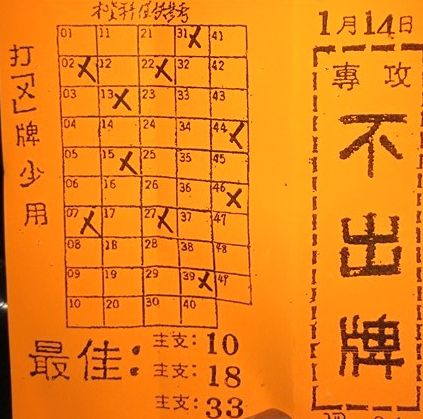 本資料僅供參考
1月14日
打「X」牌少用
01 11 21 31X 41
02X 12 22X 32 42
03 13X 23 33 43
04 14 24 34 44X
05 15X 25 35 45
06 16 26 36 46X
07X 17 27X 37 47
08 18 28 38 48
09 19 29 39X 49
10 20 30 40
專攻
不出牌
最佳：
主支：10
主支：18
主支：33